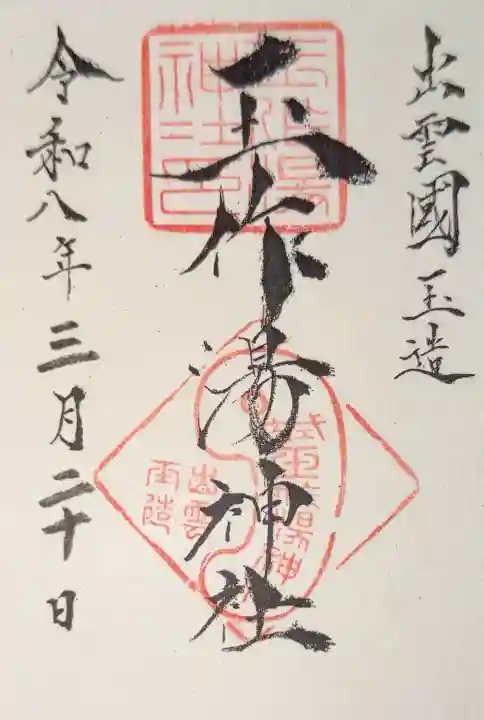 出雲國玉造
玉作湯神社
令和八年三月二十日
玉作湯
神社印
式内玉作湯神社
出雲
玉造